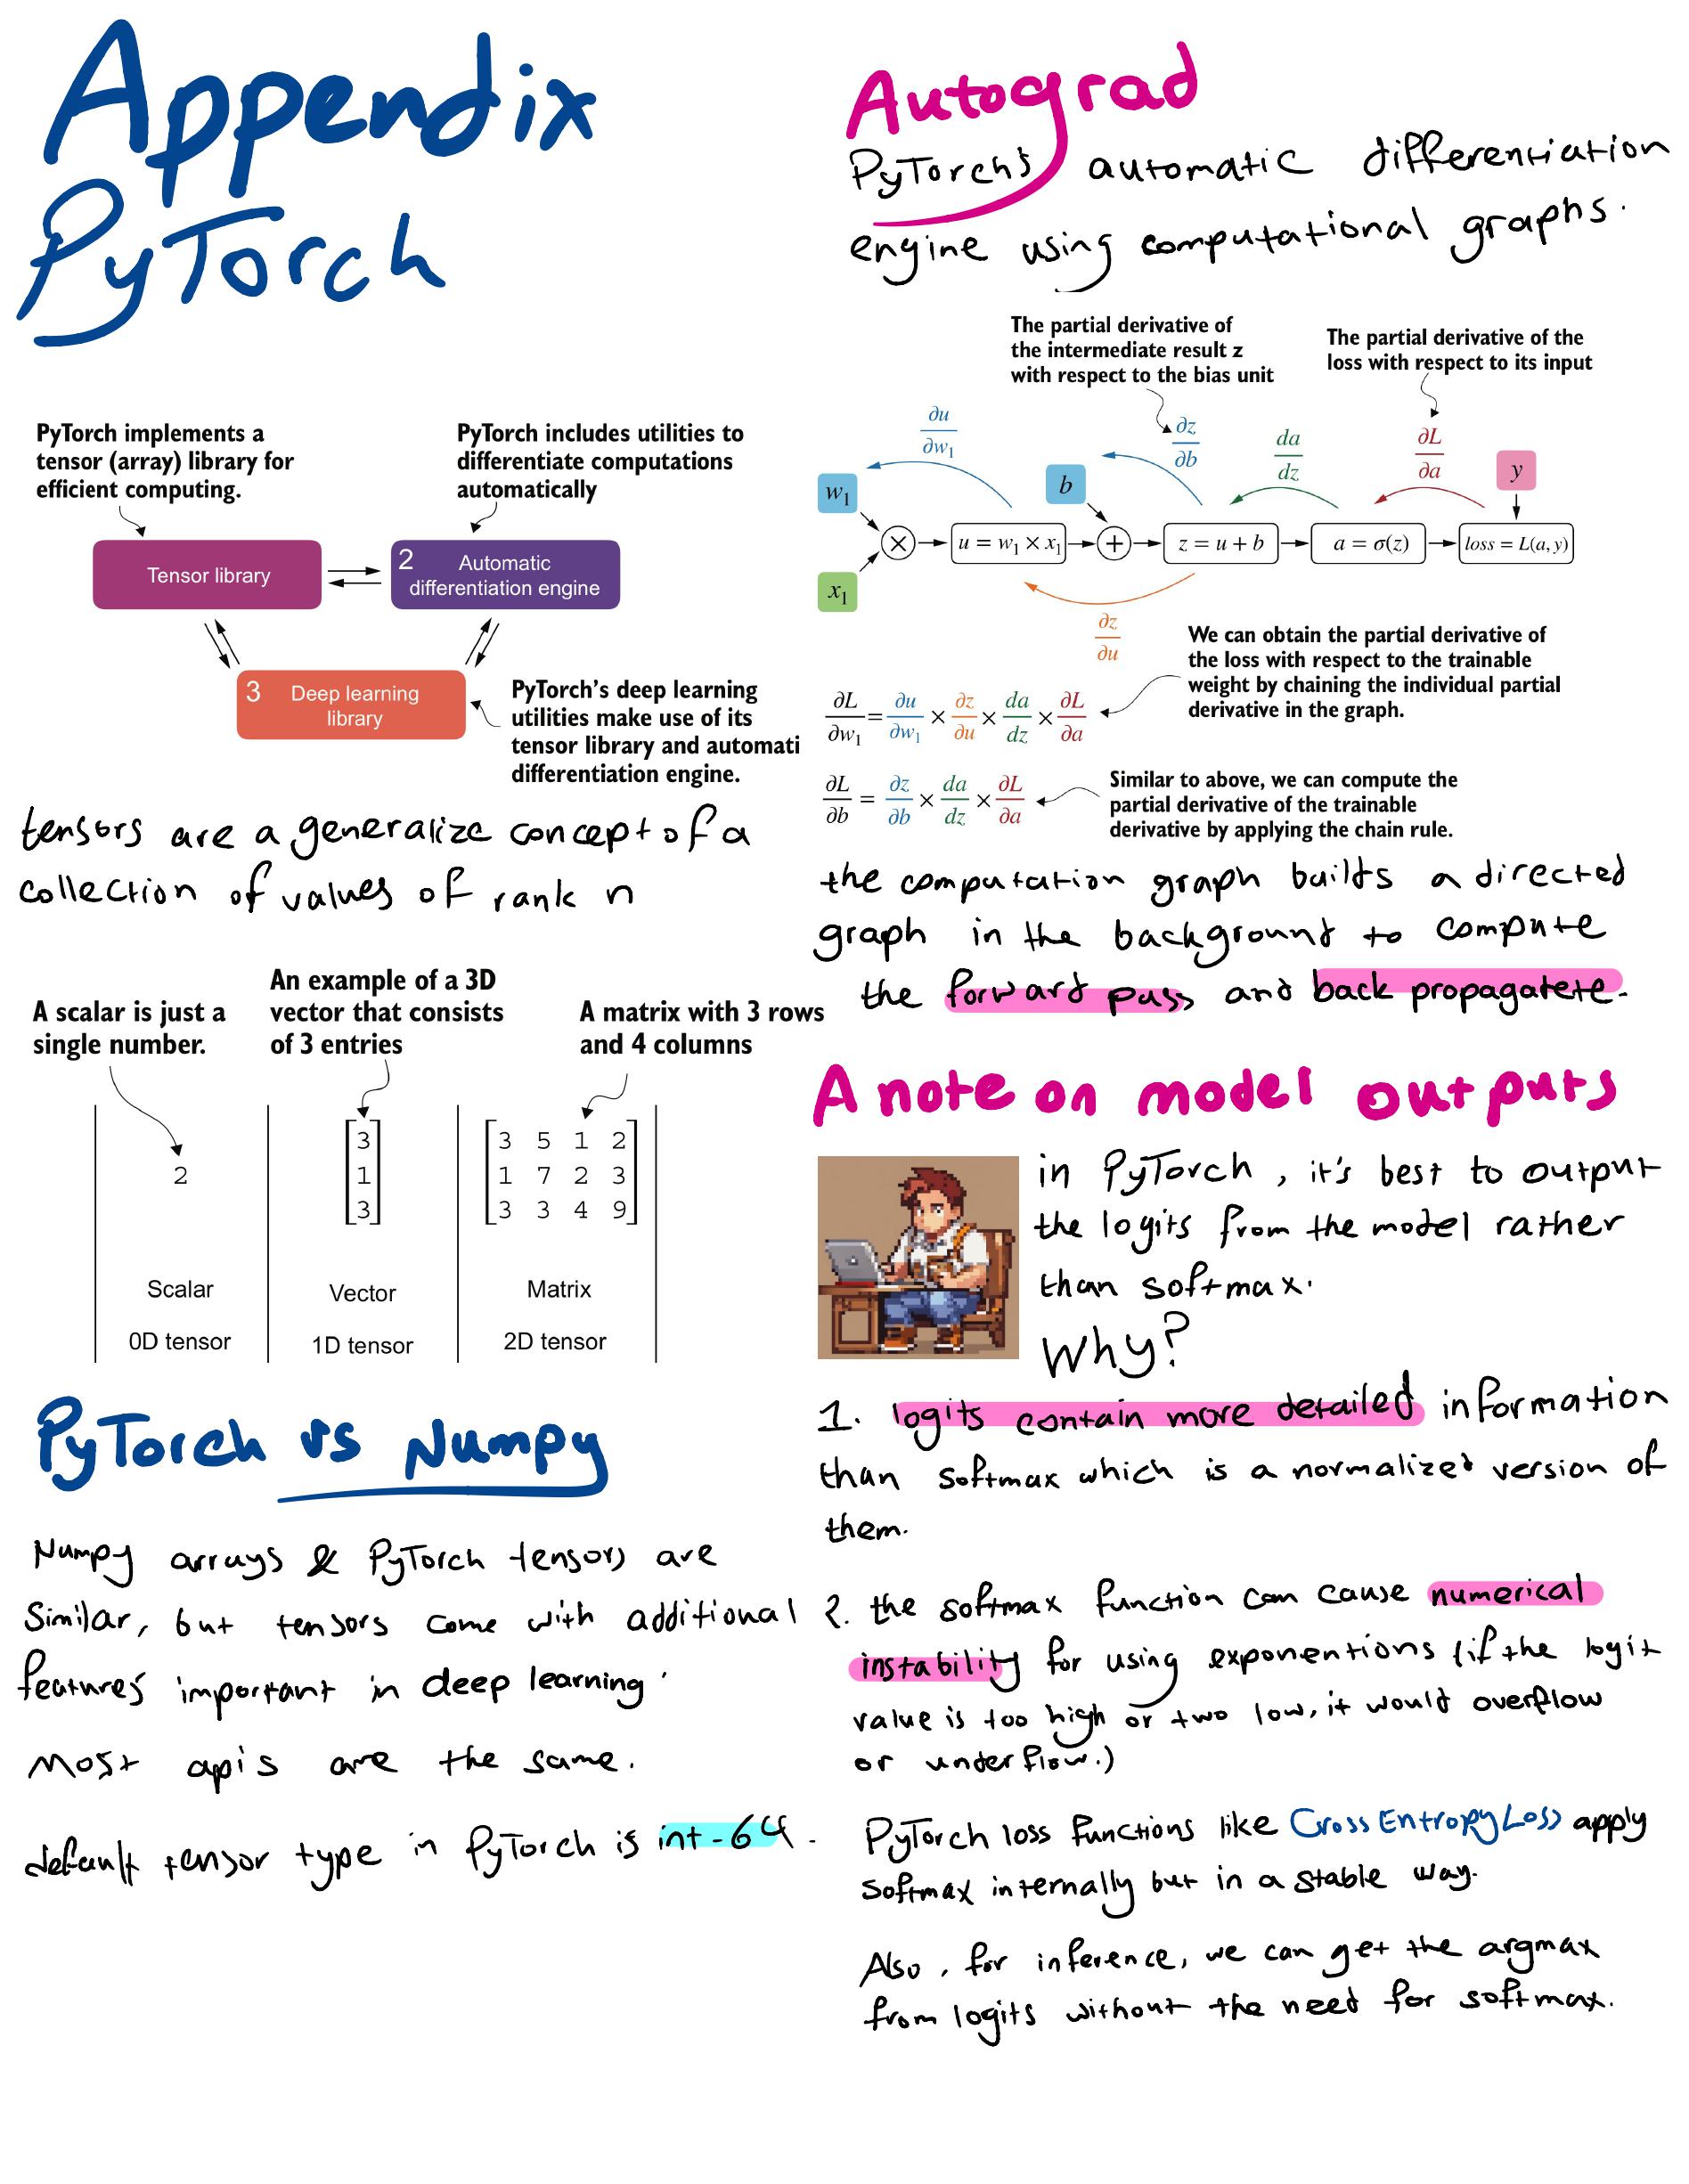 Appendix
PyTorch
PyTorch implements a
tensor (array) library for
efficient computing.
PyTorch includes utilities to
differentiate computations
automatically
Tensor library
2 Automatic
differentiation engine
3 Deep learning
library
PyTorch's deep learning
utilities make use of its
tensor library and automati
differentiation engine.
tensors are a generalize concept of a
collection of values of rank n
A scalar is just a
single number.
An example of a 3D
vector that consists
of 3 entries
A matrix with 3 rows
and 4 columns
2
3
1
3
3 5 1 2
1 7 2 3
3 3 4 9
Scalar
0D tensor
Vector
1D tensor
Matrix
2D tensor
PyTorch vs Numpy
Numpy arrays & PyTorch tensors are
Similar, but tensors come with additional
features important in deep learning.
Most api's are the same.
default tensor type in PyTorch is int-64.
Autograd
PyTorch's automatic differentiation
engine using computational graphs.
The partial derivative of
the intermediate result z
with respect to the bias unit
The partial derivative of the
loss with respect to its input
∂u/∂w₁
∂z/∂b
da/dz
∂L/∂a
y
w₁
b
× u = w₁ × x₁ + z = u + b a = σ(z) loss = L(a, y)
x₁
∂z/∂u
We can obtain the partial derivative of
the loss with respect to the trainable
weight by chaining the individual partial
derivative in the graph.
∂L/∂w₁ = ∂u/∂w₁ × ∂z/∂u × da/dz × ∂L/∂a
∂L/∂b = ∂z/∂b × da/dz × ∂L/∂a
Similar to above, we can compute the
partial derivative of the trainable
derivative by applying the chain rule.
the computation graph builds a directed
graph in the background to compute
the forward pass and back propagatete.
A note on model outputs
in PyTorch, it's best to output
the logits from the model rather
than softmax.
Why?
1. logits contain more detailed information
than softmax which is a normalized version of
them.
2. the softmax function can cause numerical
instability for using exponentions (if the logit
value is too high or two low, it would overflow
or underflow.)
PyTorch loss functions like CrossEntropyLoss apply
softmax internally but in a stable way.
Also, for inference, we can get the argmax
from logits without the need for softmax.